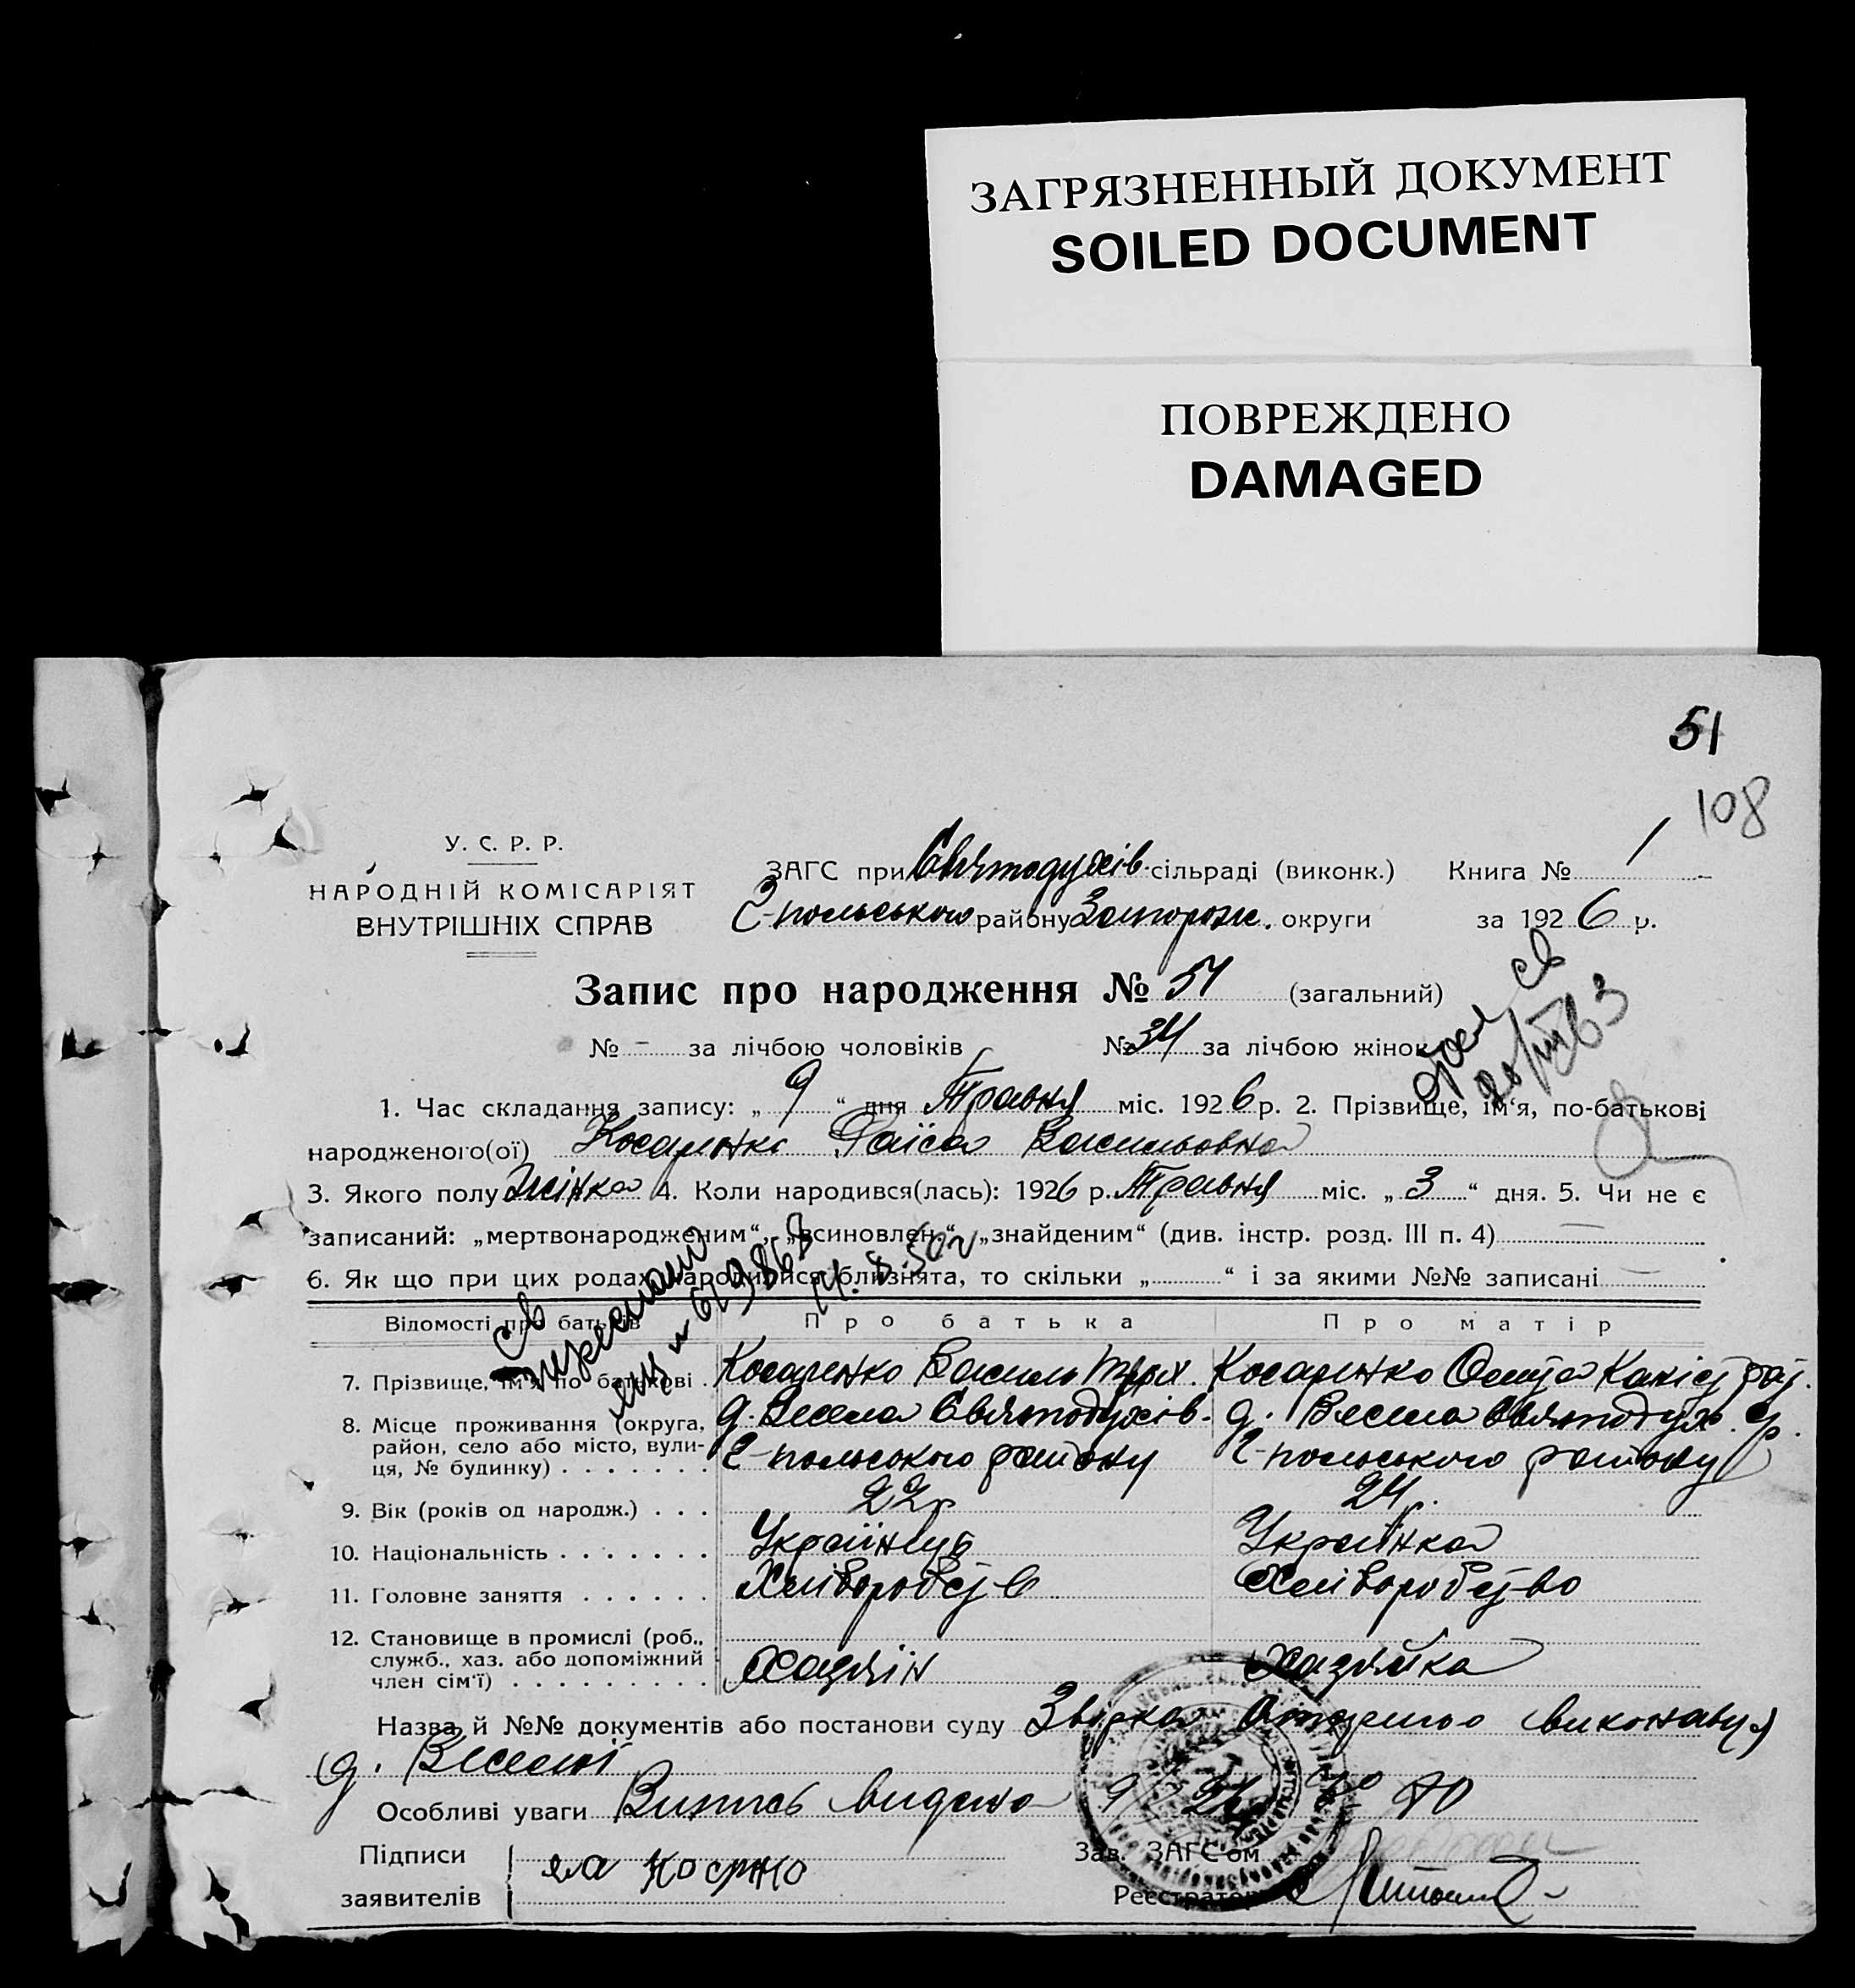 ЗАГРЯЗНЕННЫЙ ДОКУМЕНТ
SOILED DOCUMENT
ПОВРЕЖДЕНО
DAMAGED
51
108
У. С. Р. Р.
НАРОДНІЙ КОМІСАРІЯТ
ВНУТРІШНІХ СПРАВ
ЗАГС при Святодухів. сільраді (виконк.) Книга № 1
-польського району Запорож. округи за 1926 р.
Запис про народження № 51 (загальний)
№ - за лічбою чоловіків № 34 за лічбою жінок
1. Час складання запису: „ 9 “ дня Травня міс. 1926 р. 2. Прізвище, ім'я, по-батькові
народженого(ої) Косаренко Раїса Васильовна
3. Якого полу Жінка 4. Коли народився(лась): 1926 р. Травня міс. „ 3 “ дня. 5. Чи не є
записаний: „мертвонародженим“, „всиновлен.“ „знайденим“ (див. інстр. розд. III п. 4)
6. Як що при цих родах народилися близнята, то скільки „ “ і за якими №№ записані
Відомості про батьків Про батька Про матір
7. Прізвище, ім'я по батькові Косаренко Василь Косаренко
8. Місце проживання (округа, район, село або місто, вулиця, № будинку) д. Весела Святодухів. д. Весела Святодух.
-польського району -польського району
9. Вік (років од народж.) 22р 24р.
10. Національність Українець Українка
11. Головне заняття Хліборобств Хліборобство
12. Становище в промислі (роб., служб., хаз. або допоміжний член сім'ї) Хазяін Хазяйка
Назва й №№ документів або постанови суду виконавця
д. Веселої
Особливі уваги Випись видана
Підписи
заявителів
Зав. ЗАГС'ом
Реєстратор